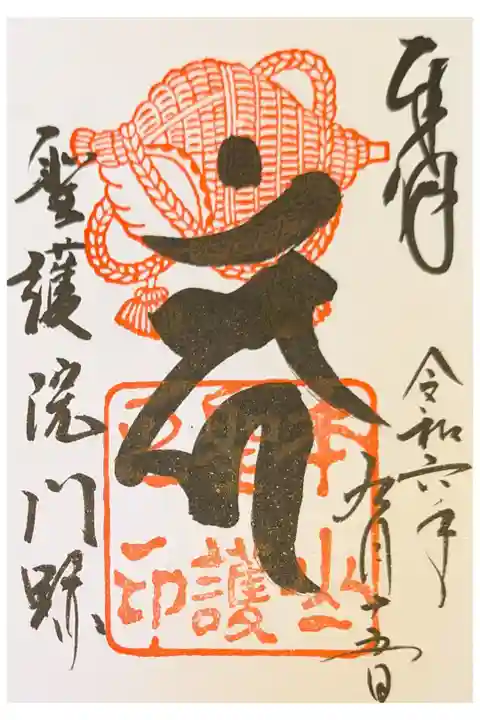 奉拝
令和六年
九月十五日
本山
護
印
聖護院門跡